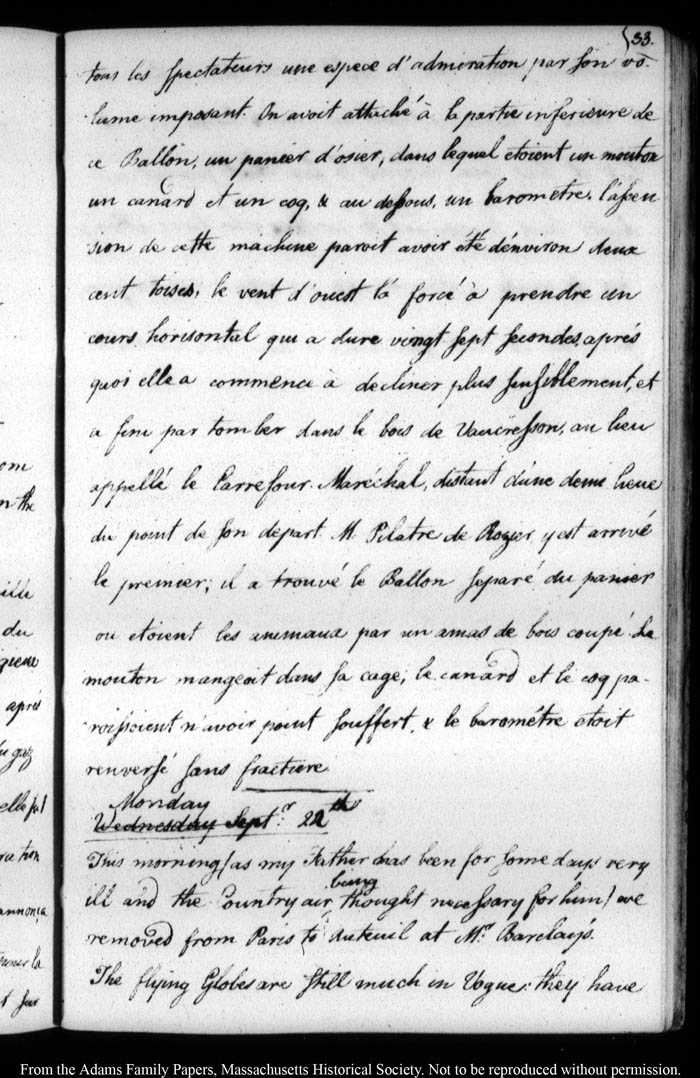 33.
tous les spectateurs une espece d'admiration par son vo-
lume imposant. On avoit attaché à la partie inferieure de
ce Ballon, un panier d'osier, dans lequel etoient un mouton
un canard et un coq, & au dessous, un barometre. l'ascen
sion de cette machine paroit avoir été d'environ deux
cent toises, le vent d'ouest l'a forcé à prendre un
cours horisontal qui a duré vingt sept secondes, aprés
quoi elle a commencé à decliner plus sensiblement, et
a fini par tomber dans le bois de Vaucresson, au lieu
appellé le Carrefour Maréchal, distant d'une demi lieue
du point de son depart. M. Pilatre de Rozier y est arrivé
le premier; il a trouvé le Ballon separé du panier
ou etoient les animaux par un amas de bois coupé. Le
mouton mangeoit dans sa cage; le canard et le coq pa-
roissoient n'avoir point souffert, & le barométre etoit
renversé sans fracture
Monday
Wednesday Septr. 22th
This morning (as my Father has been for some days very
ill and the Country air being thought necessary for him) we
removed from Paris to Auteuil at Mr. Barclay's.
The flying Globes are still much in Vogue: they have
om
n the
ille
du
après
du gaz
elle fut
ration
annonça
la
sur
From the Adams Family Papers, Massachusetts Historical Society. Not to be reproduced without permission.